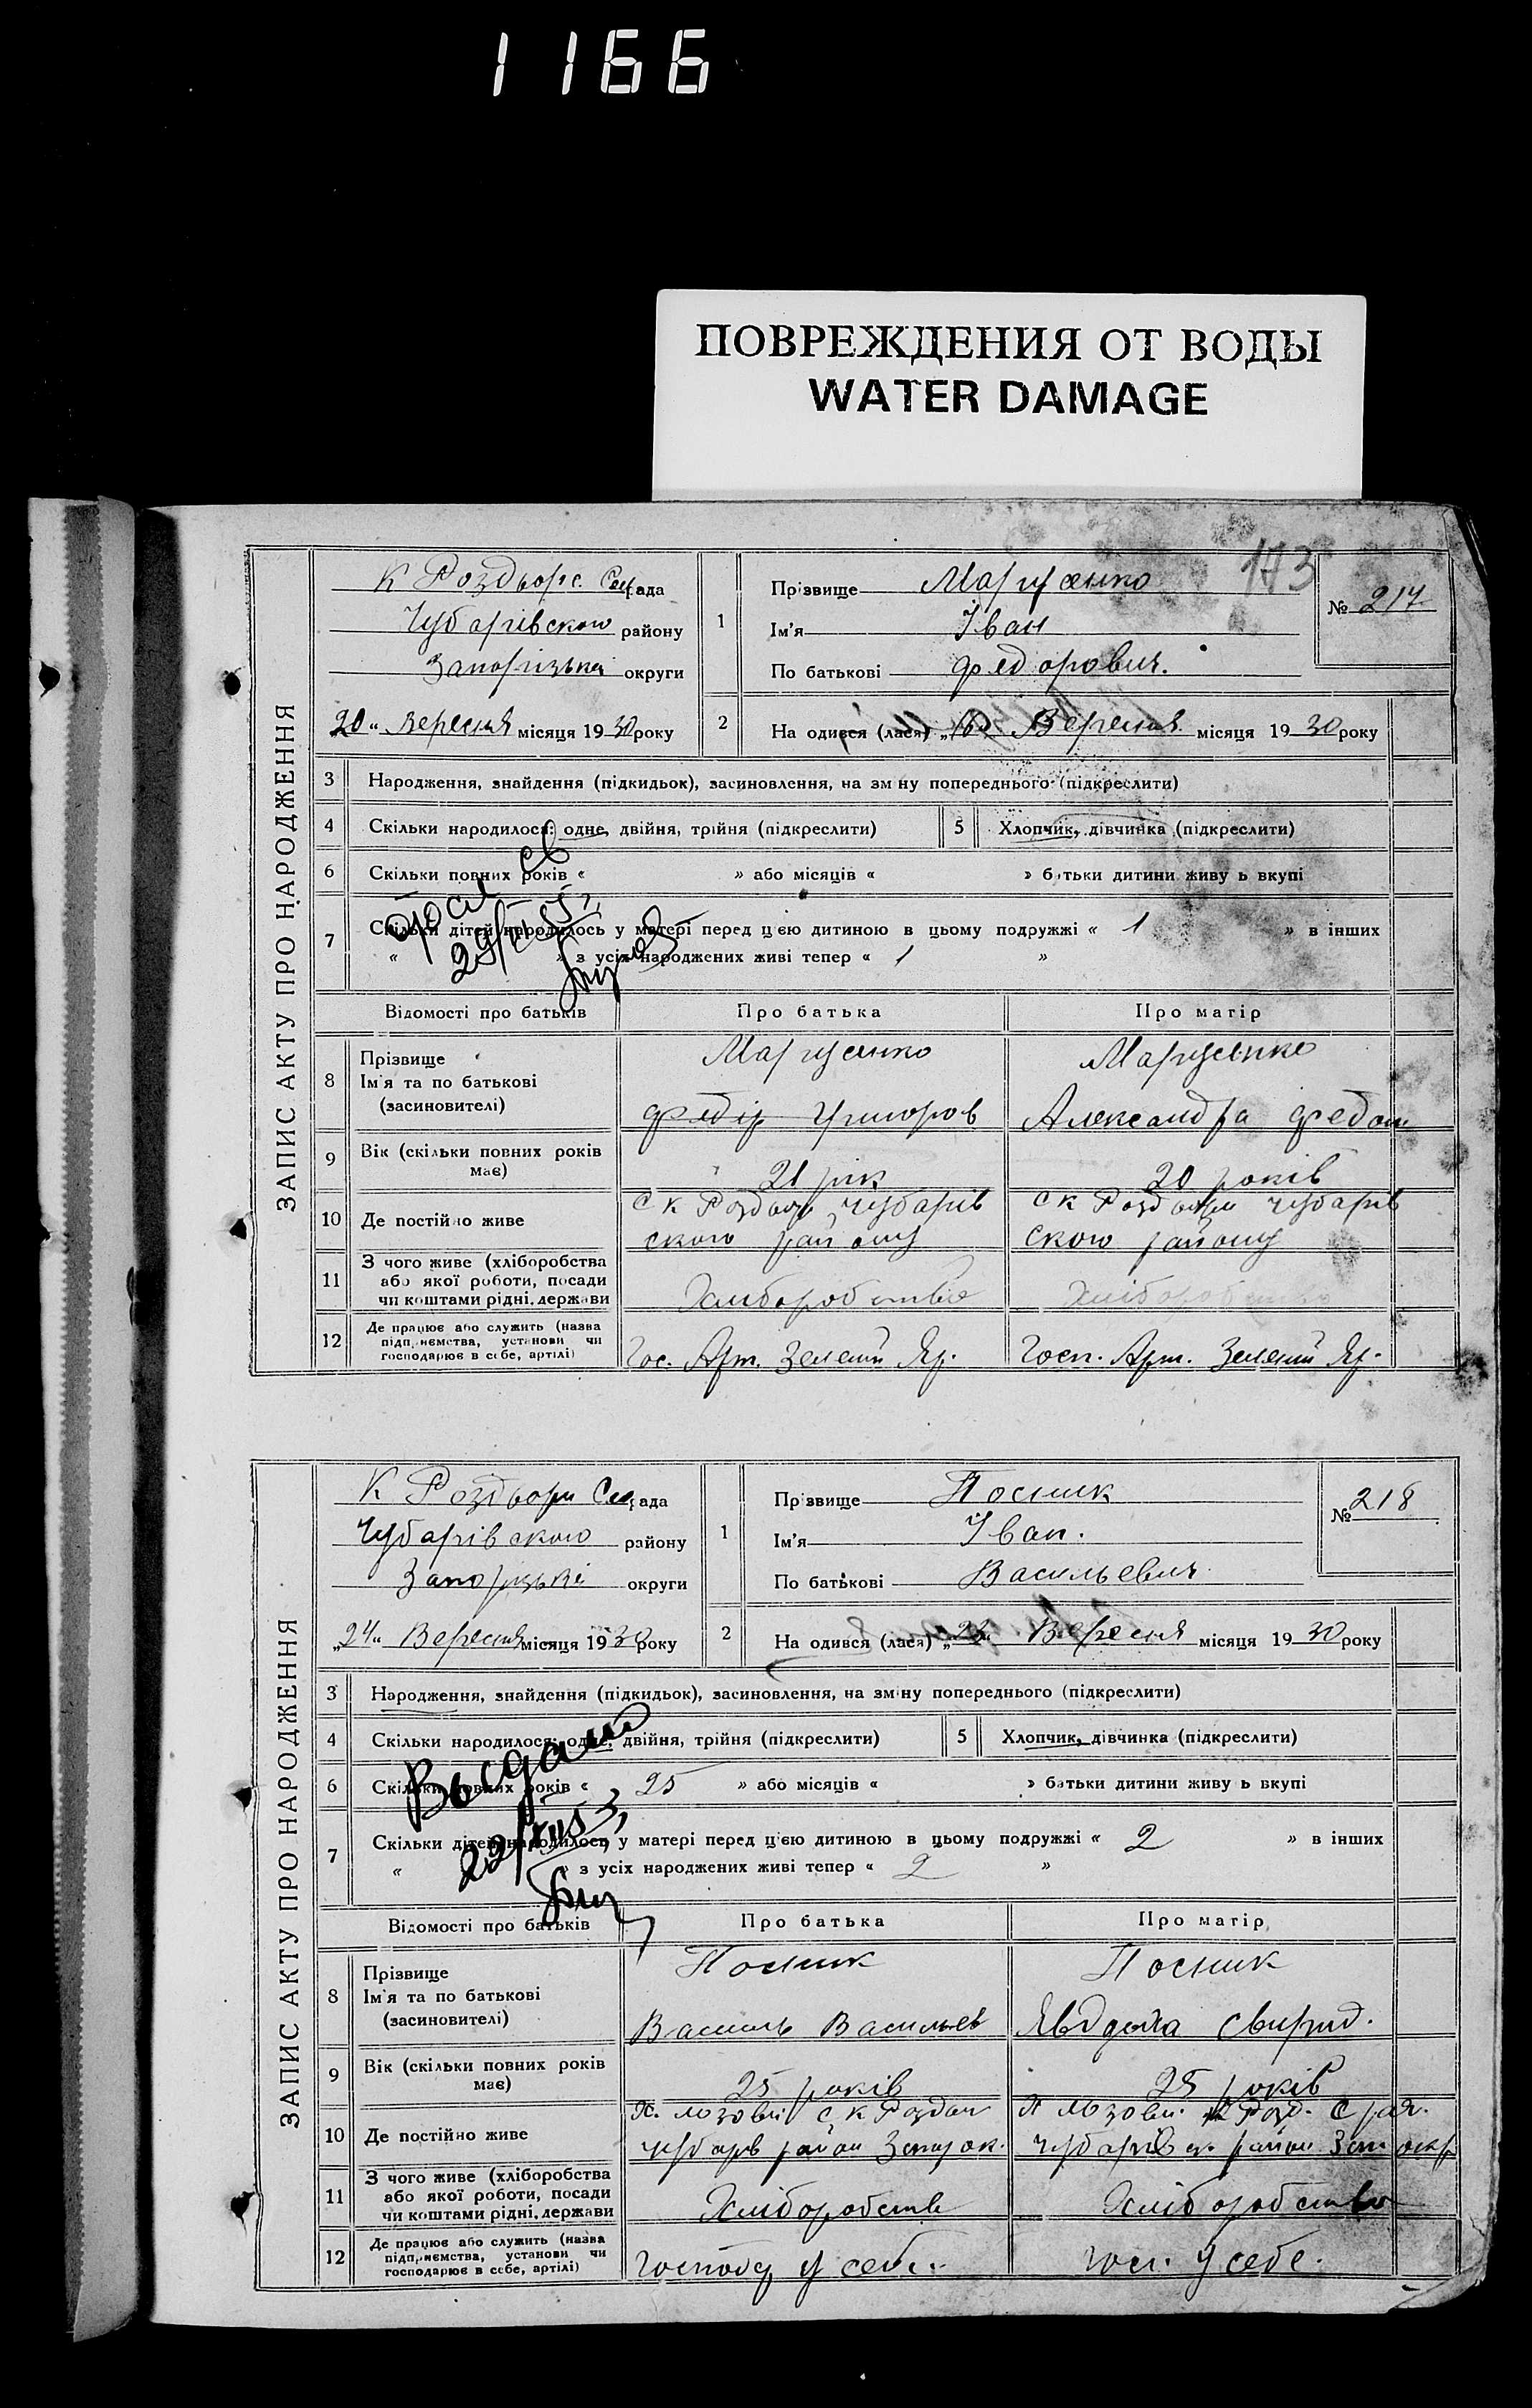 1166
ПОВРЕЖДЕНИЯ ОТ ВОДЫ
WATER DAMAGE
173
ЗАПИС АКТУ ПРО НАРОДЖЕННЯ
К Роздорс. Сел рада
Чубарівского району
Запорізька округи
20 " Вересня місяця 1930 року
1
Прізвище Марусенко
Ім'я Іван
По батькові Федорович.
№ 217
2
На одився (лася) Вересня місяця 1930 року
3 Народження, знайдення (підкидьок), засиновлення, на зміну попереднього (підкреслити)
4 Скільки народилося: одне, двійня, трійня (підкреслити)
5 Хлопчик, дівчинка (підкреслити)
6 Скільки повних років « » або місяців « » батьки дитини живу ь вкупі
7 Скільки дітей народилось у матері перед цією дитиною в цьому подружжі « 1 » в інших
« » з усіх народжених живі тепер « 1 »
Відомості про батьків Про батька Про матір
8 Прізвище
Ім'я та по батькові
(засиновителі)
Марусенко
Федір Григоров
Марусенко
Александра Федот
9 Вік (скільки повних років має)
21 рік
20 років
10 Де постійно живе
с к Роздор чубарів
ского району
с к Роздори чубарів
ского району
11 З чого живе (хліборобства
або якої роботи, посади
чи коштами рідні, держави
Хліборобство
Хліборобство
12 Де працює або служить (назва
підприємства, установи чи
господарює в себе, артілі)
Гос. Арт. Зелений Яр.
Госп. Арт. Зелений Яр.
ЗАПИС АКТУ ПРО НАРОДЖЕННЯ
К Роздори Сел рада
Чубарівского району
Запорізькі округи
"24" Вересня місяця 1930 року
1
Прізвище Посник
Ім'я Іван.
По батькові Васильевич
№ 218
2
На одився (лася) „23" Вересня місяця 1930 року
3 Народження, знайдення (підкидьок), засиновлення, на зміну попереднього (підкреслити)
4 Скільки народилося: одне, двійня, трійня (підкреслити)
5 Хлопчик, дівчинка (підкреслити)
6 Скільки повних років « 25 » або місяців « » батьки дитини живу ь вкупі
7 Скільки дітей народилось у матері перед цією дитиною в цьому подружжі « 2 » в інших
« » з усіх народжених живі тепер « 2 »
Відомості про батьків Про батька Про матір
8 Прізвище
Ім'я та по батькові
(засиновителі)
Посник
Василь Васильев
Посник
Явдоха Свирид.
9 Вік (скільки повних років має)
25 років
25 років
10 Де постійно живе
Х. Лозови с К Роздор
чубарів район Запор ок.
Х Лозови. Розд. С рад.
чубарівск. район Зап окр
11 З чого живе (хліборобства
або якої роботи, посади
чи коштами рідні, держави
Хліборобств
Хліборобство
12 Де працює або служить (назва
підприємства, установи чи
господарює в себе, артілі)
Господ у себе.
Госп. у себе.